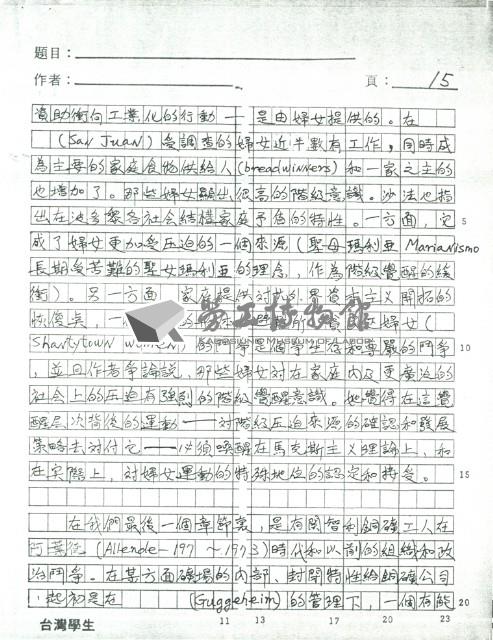 題目：
作者： 頁： 15
資助衝向工業化的行動——是由婦女提供的。在
(San Juan) 受調查的婦女近半數有工作，同時成
為主要的家庭食物供給人(breadwinners)和一家之主的
也增加了。那些婦女顯出很高的階級意識。沙法也指
出在波多黎各社會結構家庭予角的特性。一方面，它 5
成了婦女更加受压迫的一個來源（聖母瑪利亞Marianismo
長期受苦難的聖女瑪利亞的理念，作為階級覺醒的緩
衝）。另一方面，家庭提供對抗 資本主義開拓的
恢復 ，一 婦女（
Shantytown women）的鬥爭是個爭生存和尊嚴的鬥爭 10
，並回作者爭論説，那些婦女對在家庭內及更廣泛的
社會上的压迫有強烈的階級覺醒意識。她覺得在這覺
醒层次背後的運動——对階級压迫來源的確認和發展
策略去对付它——必須喚醒在馬克斯主义理論上，和
在实際上，对婦女運動的特殊地位的認定和接受。 15
在我們最後一個章節裏，是有関智利銅礦工人在
阿葉德 (Allende-197～1973)時代和以前的組織和政
治鬥爭。在某方面礦場的內部、封閉特性給銅礦公司
，起初是在 (Guggeheim)的管理下，一個有能 20
台灣學生 11 13 17 20 23
勞工博物館
KAOHSIUNG MUSEUM OF LABOR